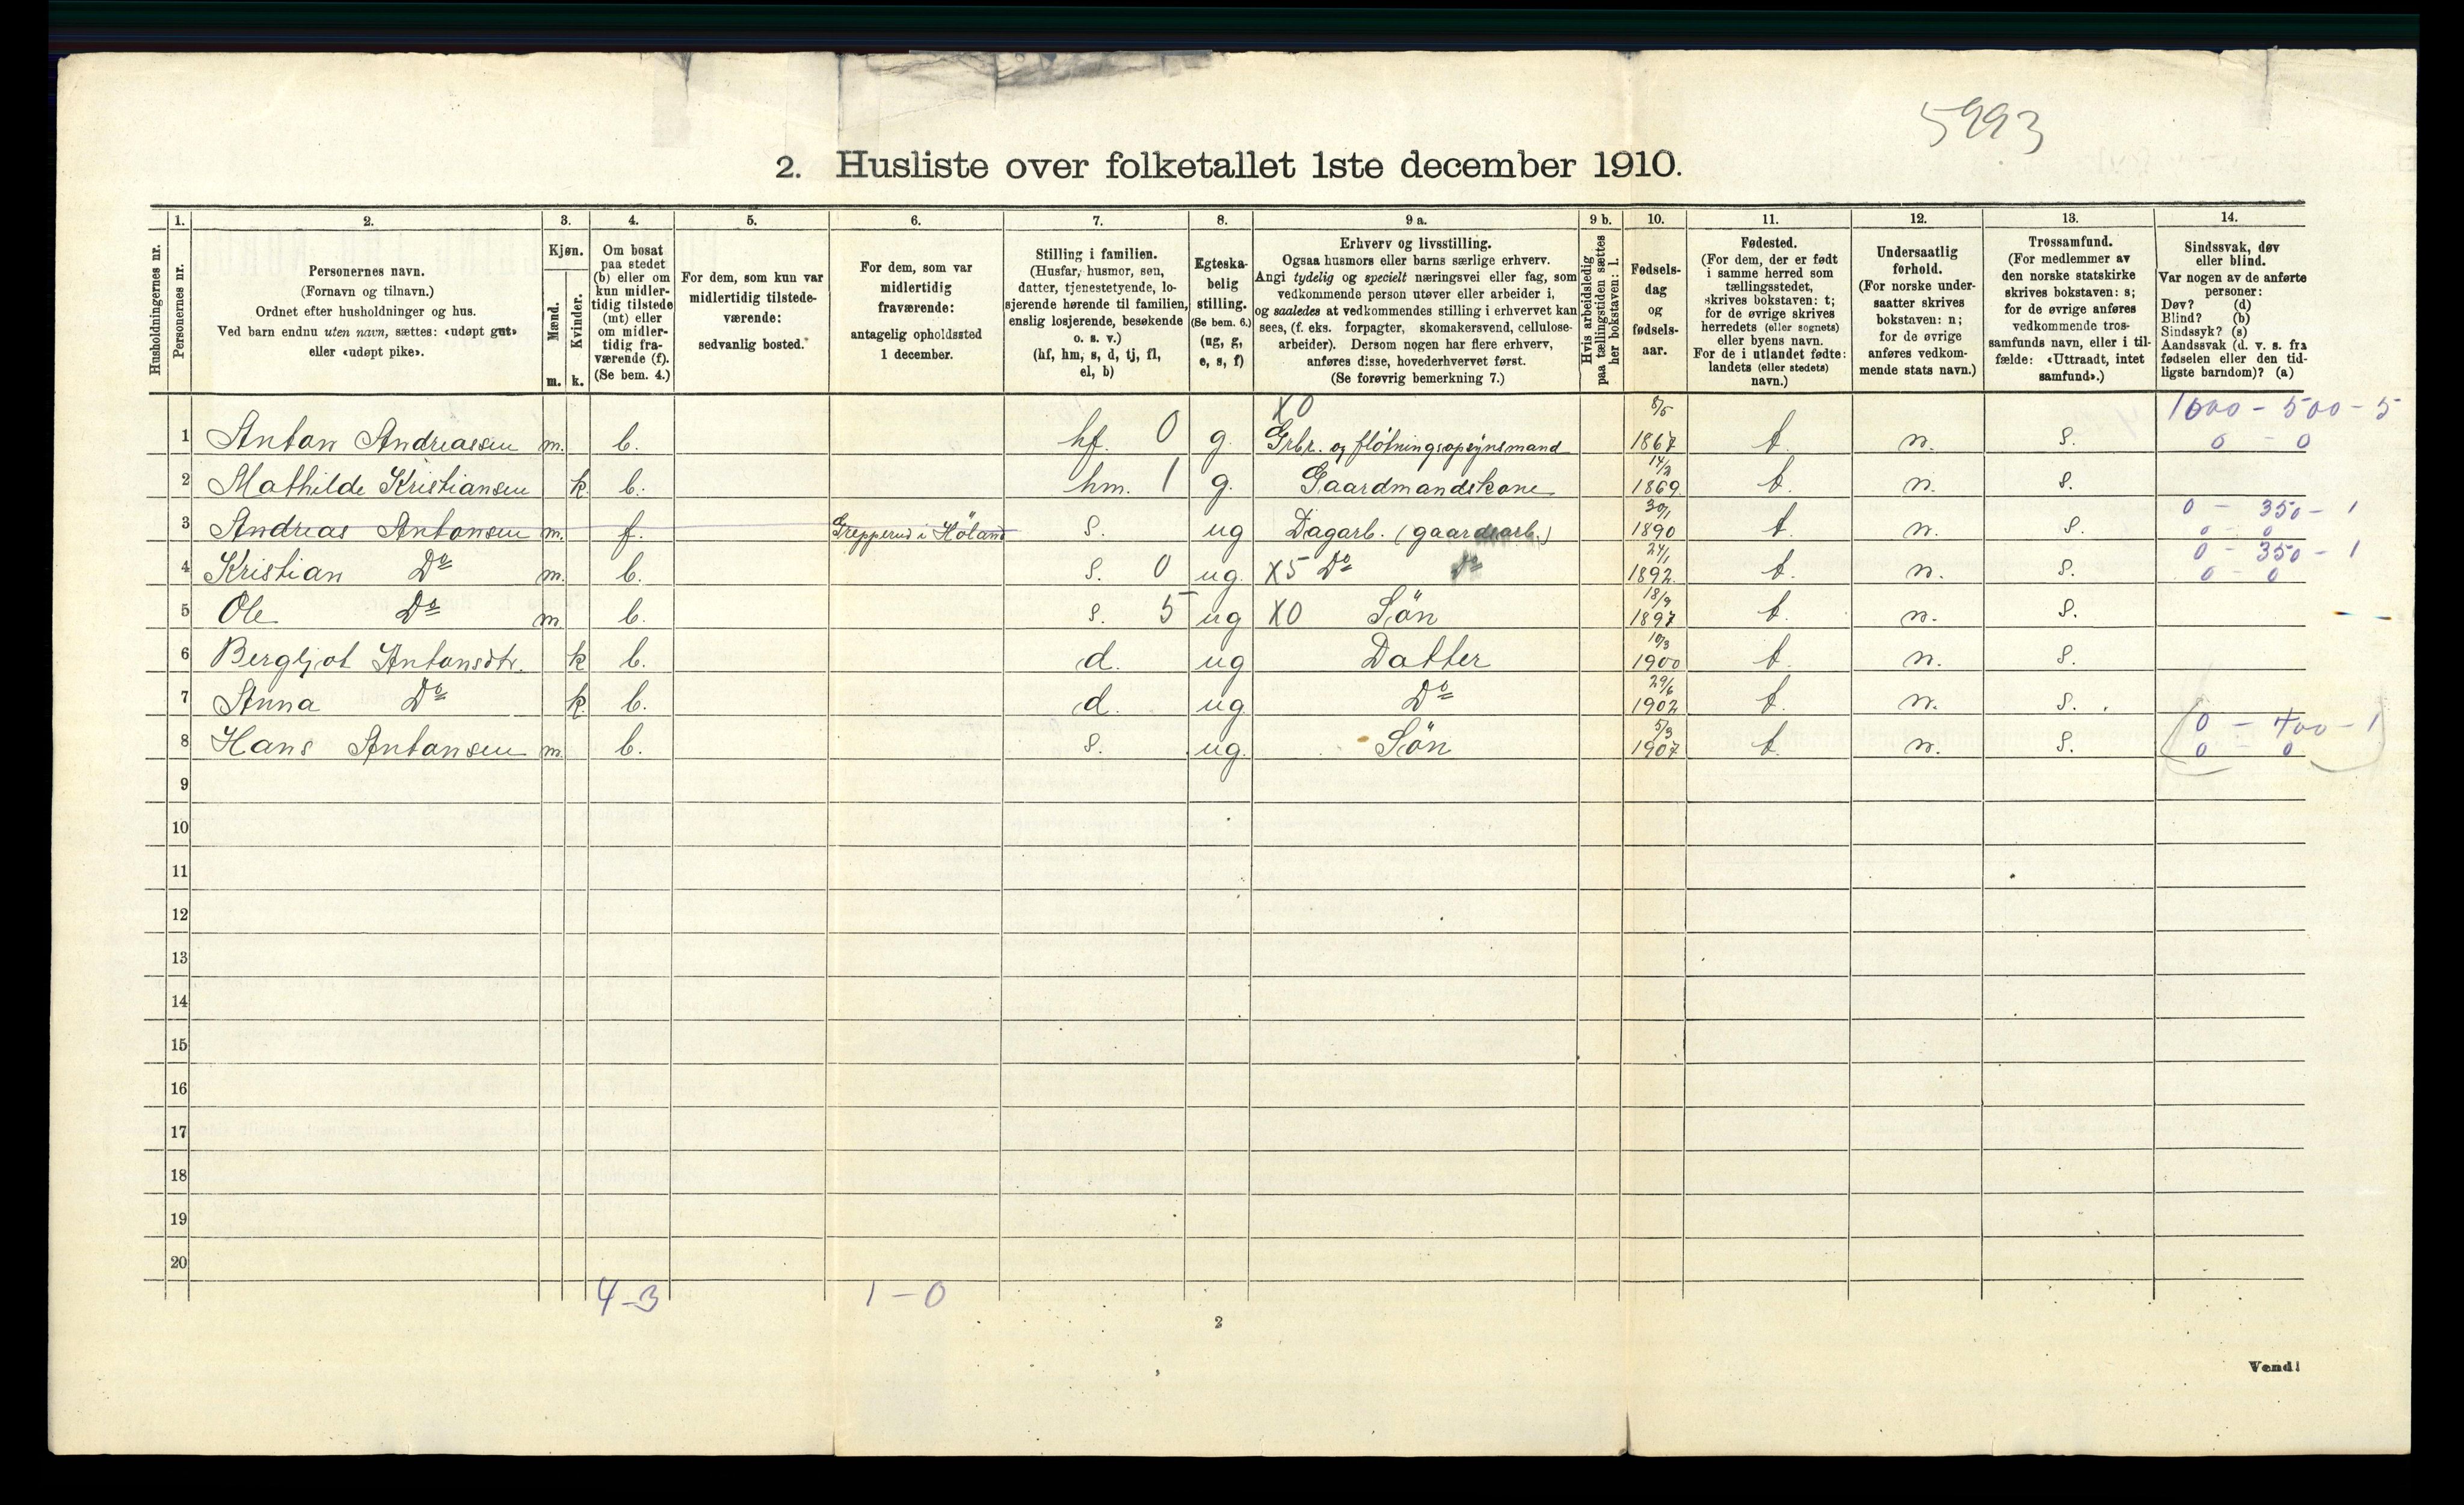 5993
2. Husliste over folketallet 1ste december 1910.
Husholdningernes nr.
1.
Personernes nr.
2.
Personernes navn.
(Fornavn og tilnavn.)
Ordnet efter husholdninger og hus.
Ved barn endnu uten navn, sættes: «udøpt gut»
eller «udøpt pike».
3.
Kjøn.
Mænd.
Kvinder.
m. k.
4.
Om bosat
paa stedet
(b) eller om
kun midler-
tidig tilstede
(mt) eller
om midler-
tidig fra-
værende (f).
(Se bem. 4.)
5.
For dem, som kun var
midlertidig tilstede-
værende:
sedvanlig bosted.
6.
For dem, som var
midlertidig
fraværende:
antagelig opholdssted
1 december.
7.
Stilling i familien.
(Husfar, husmor, søn,
datter, tjenestetyende, lo-
sjerende hørende til familien,
enslig losjerende, besøkende
o. s. v.)
(hf, hm, s, d, tj, fl,
el, b)
8.
Egteska-
belig
stilling.
(Se bem. 6.)
(ug, g,
e, s, f)
9 a.
Erhverv og livsstilling.
Ogsaa husmors eller barns særlige erhverv.
Angi tydelig og specielt næringsvei eller fag, som
vedkommende person utøver eller arbeider i,
og saaledes at vedkommendes stilling i erhvervet kan
sees, (f. eks. forpagter, skomakersvend, cellulose-
arbeider). Dersom nogen har flere erhverv,
anføres disse, hovederhvervet først.
(Se forøvrig bemerkning 7.)
9 b.
Hvis arbeidsledig
paa tællingstiden sættes
her bokstaven: l.
10.
Fødsels-
dag
og
fødsels-
aar.
11.
Fødested.
(For dem, der er født
i samme herred som
tællingsstedet,
skrives bokstaven: t;
for de øvrige skrives
herredets (eller sognets)
eller byens navn.
For de i utlandet fødte:
landets (eller stedets)
navn.)
12.
Undersaatlig
forhold.
(For norske under-
saatter skrives
bokstaven: n;
for de øvrige
anføres vedkom-
mende stats navn.)
13.
Trossamfund.
(For medlemmer av
den norske statskirke
skrives bokstaven: s;
for de øvrige anføres
vedkommende tros-
samfunds navn, eller i til-
fælde: «Uttraadt, intet
samfund».)
14.
Sindssvak, døv
eller blind.
Var nogen av de anførte
personer:
Døv? (d)
Blind? (b)
Sindssyk? (s)
Aandssvak (d. v. s. fra
fødselen eller den tid-
ligste barndom)? (a)
X0 8/5 1600 - 500 - 5
1 Anton Andreassen m. b. hf. 0 g. Grbr. og flötningsopsynsmand 1867 t. n. s. 0 - 0
14/3
2 Mathilde Kristiansen k. b. hm. 1 g. Gaardmandskone 1869 t. n. s.
30/1 0 - 350 - 1
3 Andreas Antonsen m. f. Grepperud i Höland s. ug Dagarb. (gaardsarb.) 1890 t. n. s. 0 - 0
24/1 0 - 350 - 1
4 Kristian Do m. b. s. 0 ug. X5 Do Do 1892 t. n. s. 0 - 0
18/9
5 Ole Do m. b. s. 5 ug X0 Sön 1897 t. n. s.
10/3
6 Bergljot Antonsdtr. k b. d. ug Datter 1900 t. n. s.
29/6
7 Anna Do k. b. d. ug. Do 1902 t. n. s.
5/3 0 - 400 - 1
8 Hans Antonsen m. b. s. ug. Sön 1907 t. n. s. 0 - 0
9
10
11
12
13
14
15
16
17
18
19
20
4-3 1-0
2
Vend!